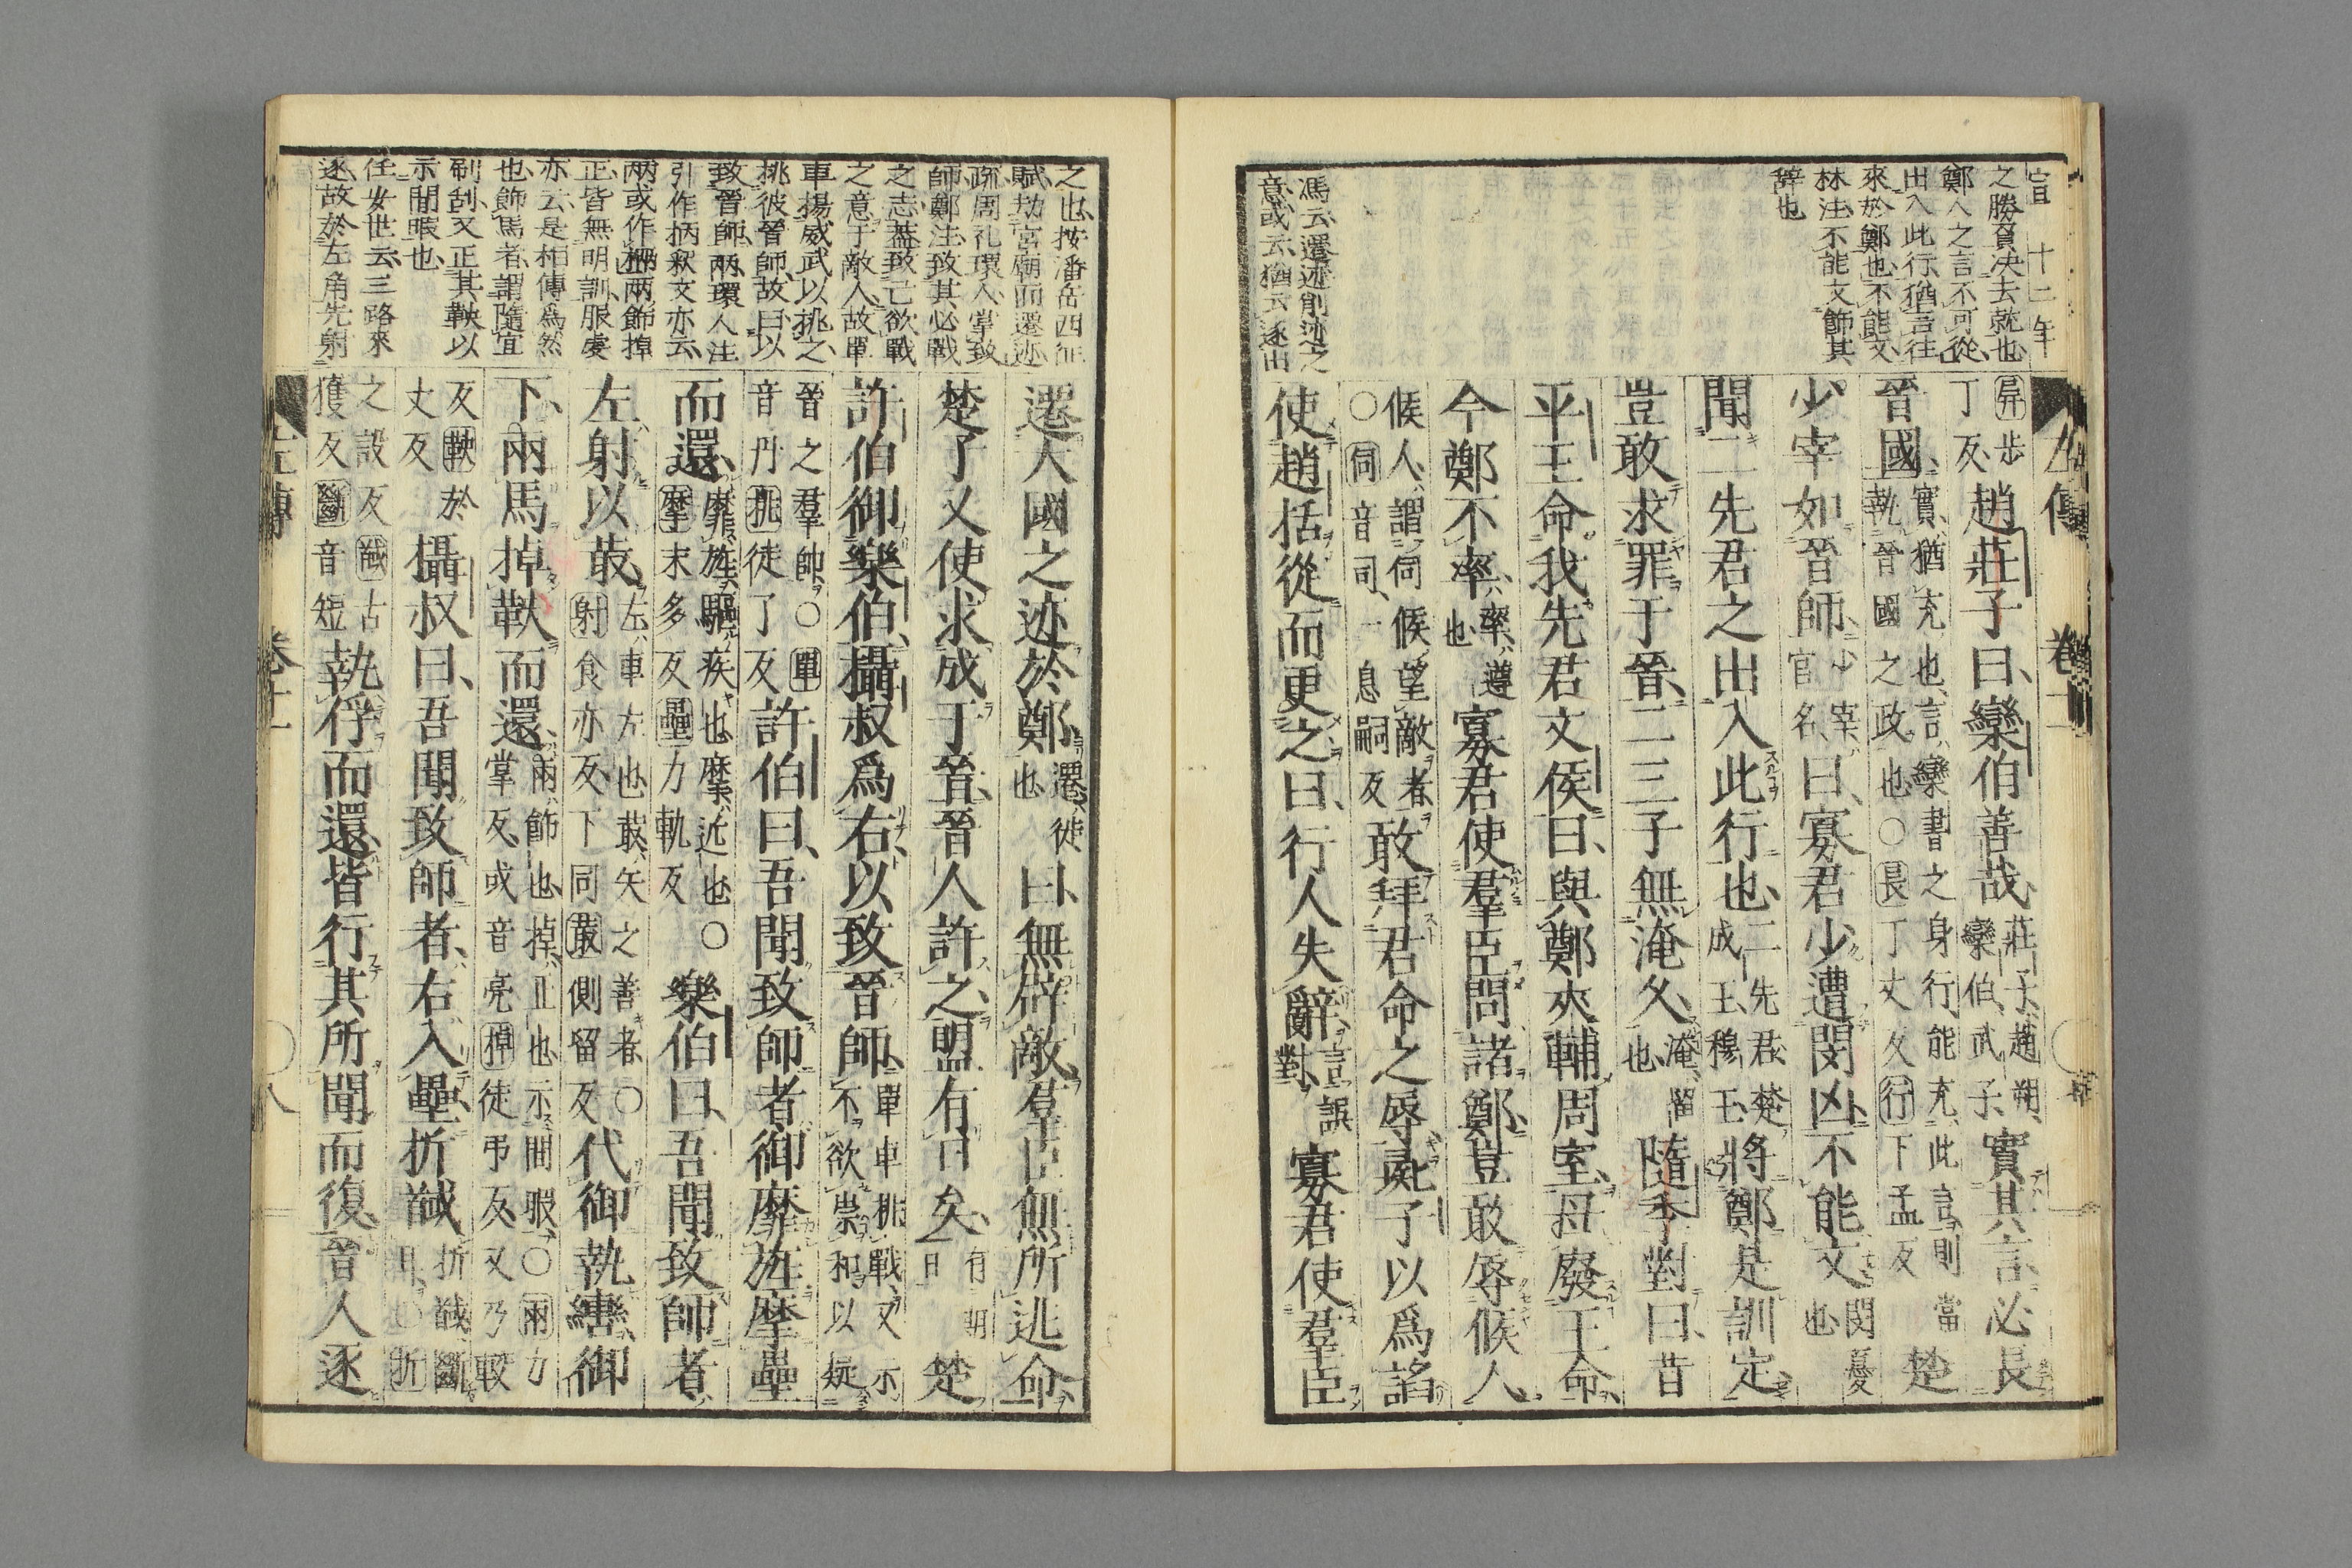 宣 十二年
之勝負决去就也
鄭人之言不可從
出入此行猶言往
來於鄭也不能文
林注不能文飾其
辞也
馮云遷迹削迹之
意或云猶云逐出
左傳 卷十一
屏步丁反趙莊子曰欒伯善哉莊子趙朔欒伯武子實其言必長
晉國實猶充也言欒書之身行能充此言則當執晉國之政也○長丁丈反行下孟反楚
少宰如晉師少宰官名曰寡君少遭閔凶不能文閔憂也
聞二先君之出入此行也二先君楚成王穆王將鄭是訓定
豈敢求罪于晉二三子無淹久淹留也隨季對曰昔
平王命我先君文侯曰與鄭夾輔周室毋廢王命
今鄭不率率遵也寡君使羣臣問諸鄭豈敢辱候人
候人謂伺候望敵者○伺音司一息嗣反敢拜君命之辱彘子以爲諂
使趙括從而更之曰行人失辭言誤對寡君使羣臣
之也按潘岳西征
賦劫宮廟而遷迹
疏周礼環人掌致
師鄭注致其必戰
之志蓋致己欲戰
之意于敵人故單
車揚威武以挑之
挑彼晉師故曰以
致晉師兩環人注
引作柄釈文亦云
兩或作柄兩飾掉
正皆無明訓服虔
亦云是相傳爲然
也飾馬者謂隨宜
刷刮又正其鞅以
示閒暇也
任安世云三路來
逐故於左角先射
遷大國之迹於鄭遷徙也曰無辟敵羣臣無所逃命
楚子又使求成于晉晉人許之盟有日矣有期日楚
許伯御樂伯攝叔爲右以致晉師單車挑戰又示不欲崇和以疑
晉之羣帥○單音丹挑徒了反許伯曰吾聞致師者御靡旌摩壘
而還靡旌驅疾也摩近也○摩末多反壘力軌反樂伯曰吾聞致師者
左射以菆左車左也菆矢之善者○射食亦反下同菆側留反代御執轡御
下兩馬掉鞅而還兩飾也掉正也示閒暇○兩力掌反或音亮掉徒弔反又乃較
反鞅於丈反攝叔曰吾聞致師者右入壘折馘折馘斷耳也○折
之設反馘古獲反斷音短執俘而還皆行其所聞而復晉人逐
左傳 卷十一 八